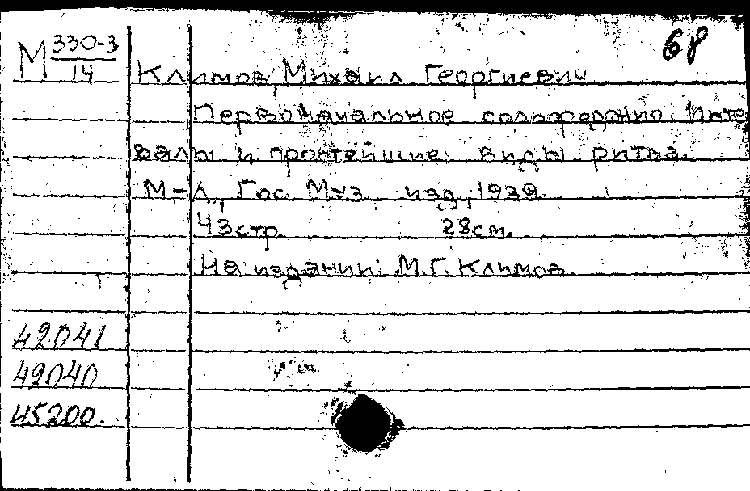 68
М 330-3
14
Климов, Михаил Георгиевич
Первоначальное сольфеджио. Инте
валы и простейшие виды ритма.
М-Л, Гос. Муз. изд., 1939.
43 стр. 28 см.
На издании: М.Г. Климов.
42041
42040
45200.